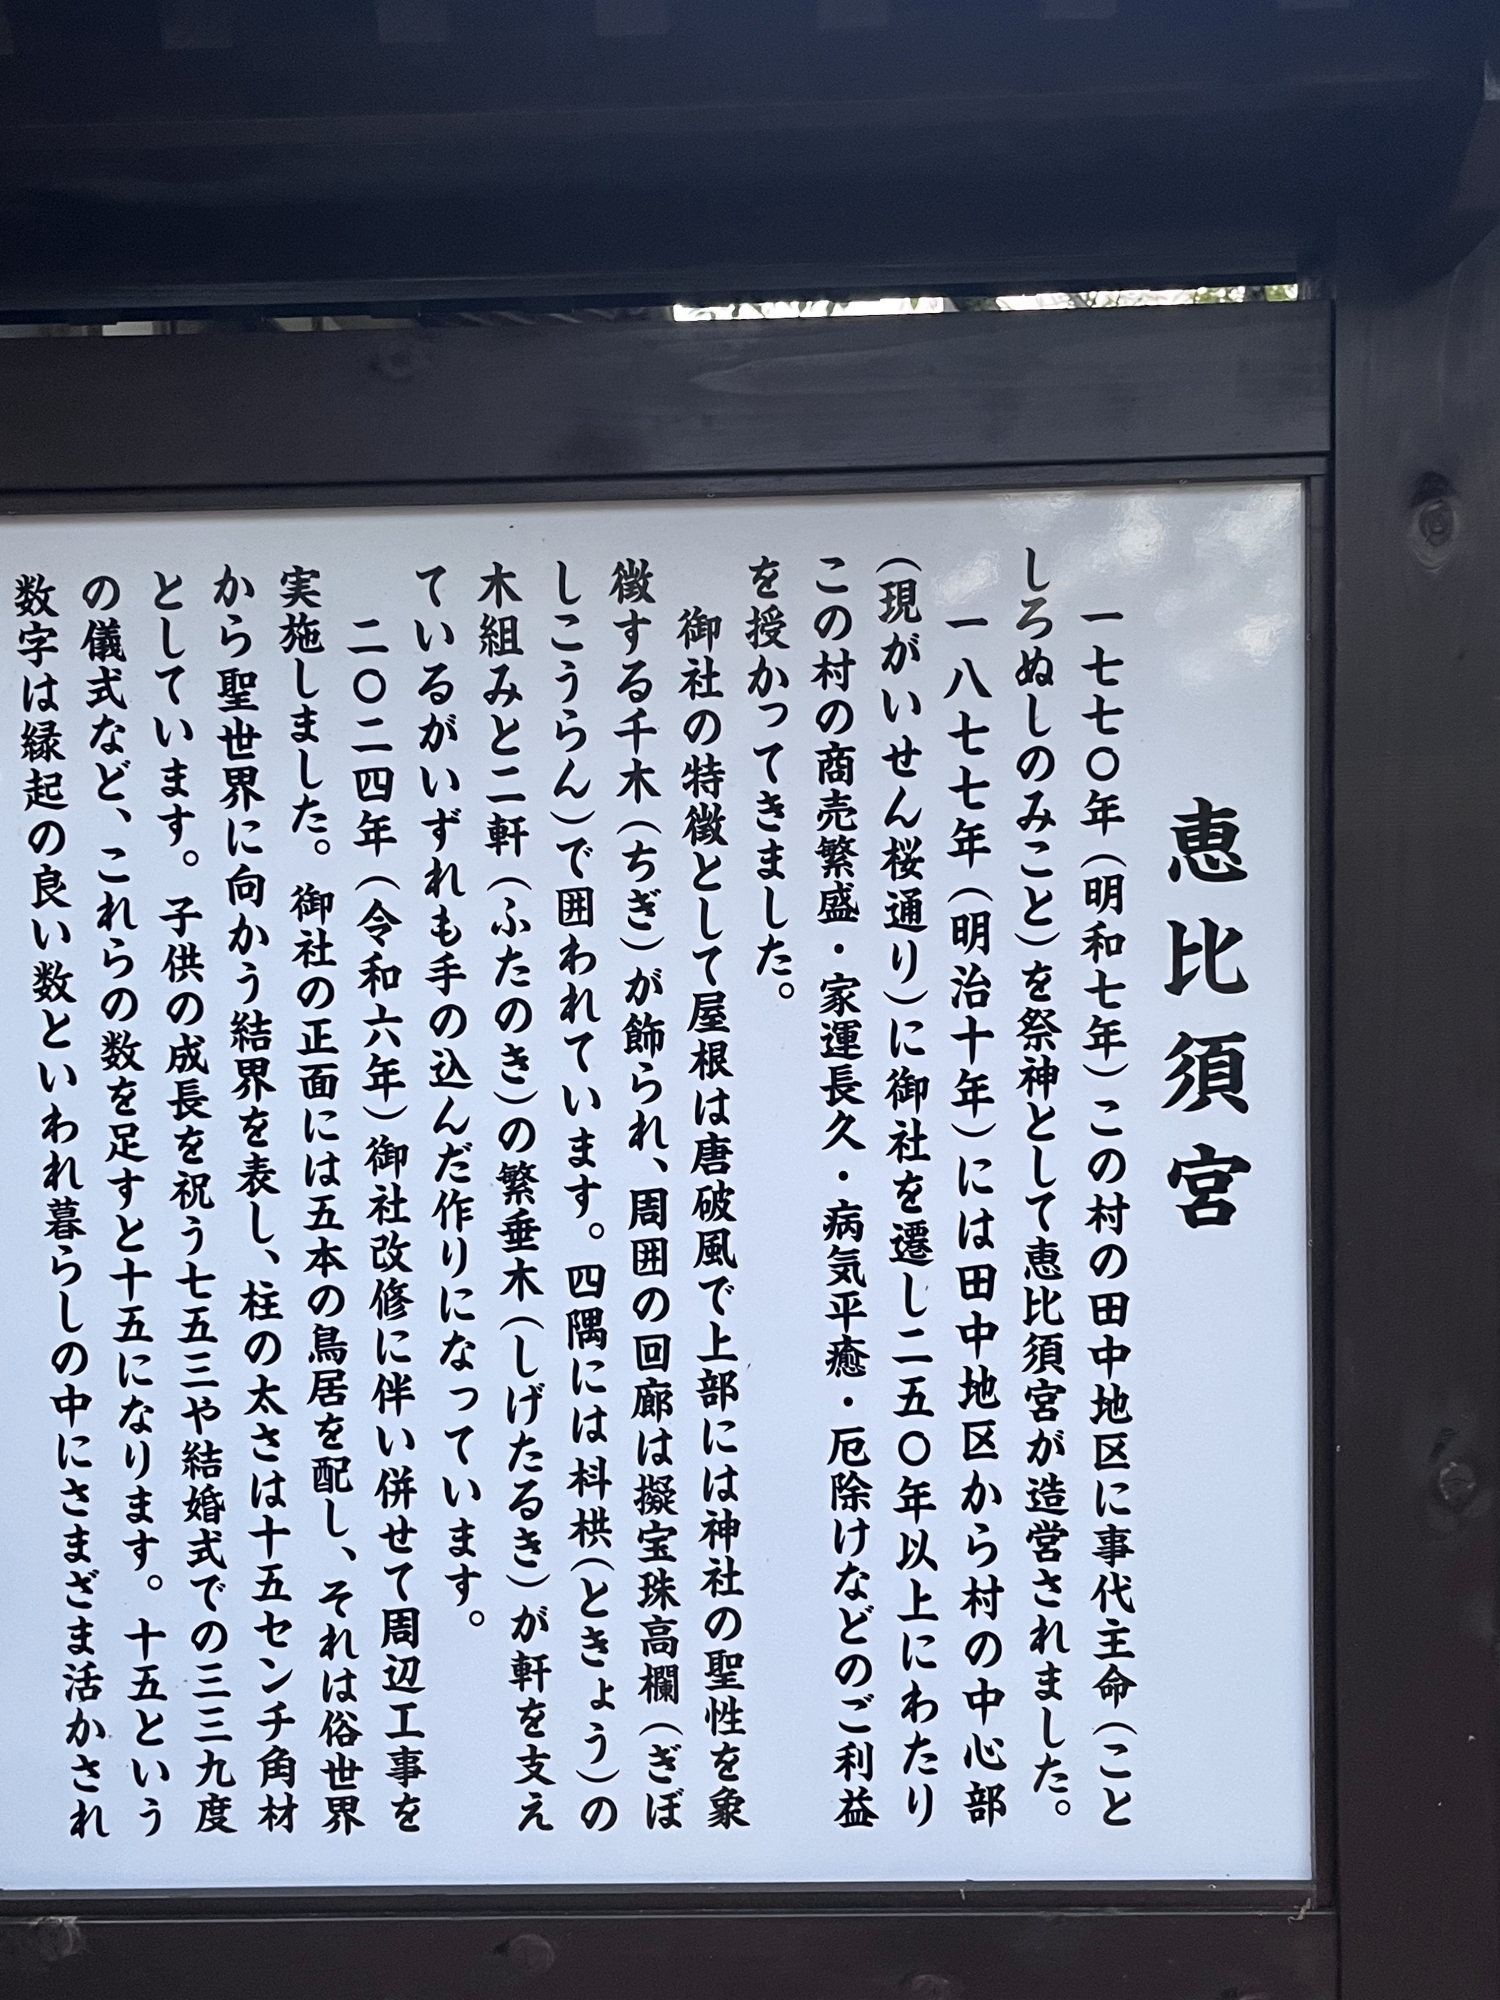 恵比須宮
一七七〇年（明和七年）この村の田中地区に事代主命（こと
しろぬしのみこと）を祭神として恵比須宮が造営されました。
一八七七年（明治十年）には田中地区から村の中心部
（現がいせん桜通り）に御社を遷し二五〇年以上にわたり
この村の商売繁盛・家運長久・病気平癒・厄除けなどのご利益
を授かってきました。
御社の特徴として屋根は唐破風で上部には神社の聖性を象
徴する千木（ちぎ）が飾られ、周囲の回廊は擬宝珠高欄（ぎぼ
しこうらん）で囲われています。四隅には枓栱（ときょう）の
木組みと二軒（ふたのき）の繁垂木（しげたるき）が軒を支え
ているがいずれも手の込んだ作りになっています。
二〇二四年（令和六年）御社改修に伴い併せて周辺工事を
実施しました。御社の正面には五本の鳥居を配し、それは俗世界
から聖世界に向かう結界を表し、柱の太さは十五センチ角材
としています。子供の成長を祝う七五三や結婚式での三三九度
の儀式など、これらの数を足すと十五になります。十五という
数字は縁起の良い数といわれ暮らしの中にさまざま活かされ